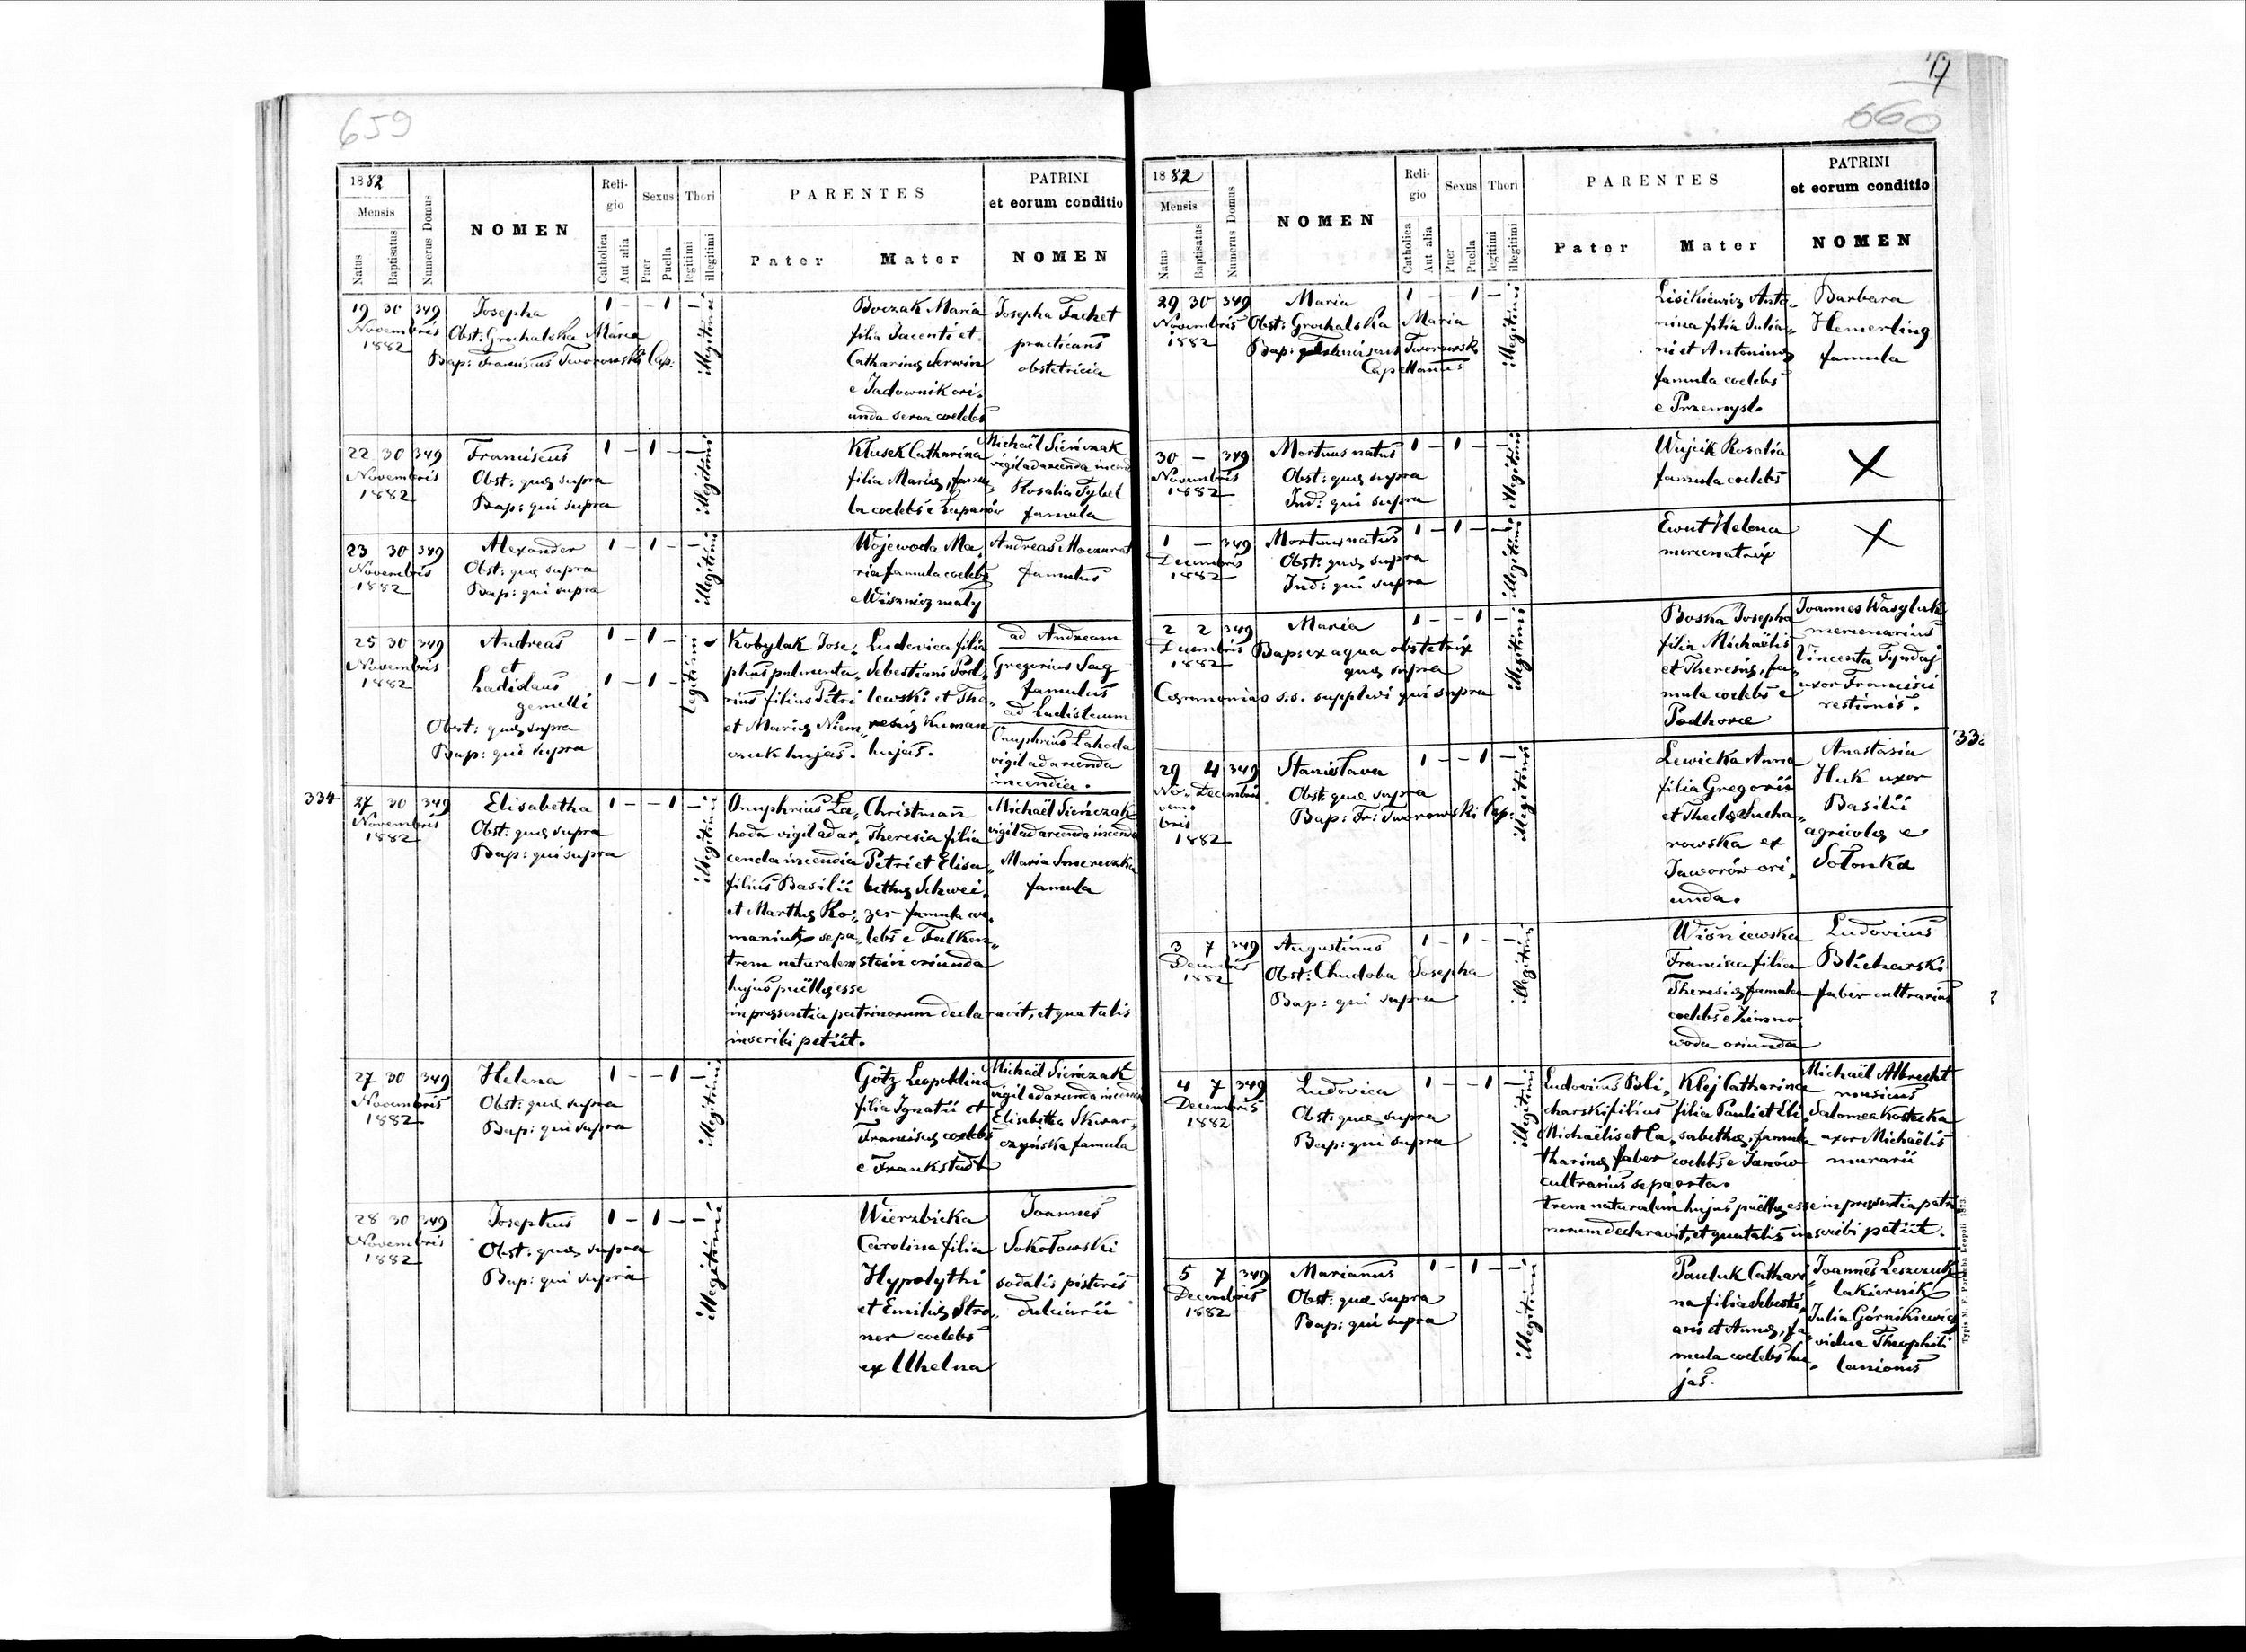 659
1882
Mensis
Natus
Baptisatus
Numerus Domus
NOMEN
Reli-
gio
Catholica
Aut alia
Sexus
Puer
Puella
Thori
legitimi
illegitimi
PARENTES
Pater
Mater
PATRINI
et eorum conditio
NOMEN
19 30 349
Novembris
1882
Josepha
Obst: Grochalska Maria
Bap: Franciscus Tworowski Cap:
1 – – 1 –
illegitimi
Boczak Maria
filia Jacenti et
Catharinæ Serwin
e Jadownik ori-
unda serva coelebs
Josepha Fachet
practicans
obstetricia
22 30 349
Novembris
1882
Franciscus
Obst: quæ supra
Bap: qui supra
1 – 1 – –
illegitimi
Kłusek Catharina
filia Mariæ, famu-
la coelebs e Zuparów
Michaël Sieńczak
vigil ad arcenda incend
Rosalia Tybel
famula
23 30 349
Novembris
1882
Alexander
Obst: quæ supra
Bap: qui supra
1 – 1 – –
illegitimi
Wojewoda Ma-
ria famula coelebs
e Wisznicz mały
Andreas Moczurat
famulus
25 30 349
Novembris
1882
Andreas
et
Ladislaus
gemelli
Obst: quæ supra
Bap: qui supra
1 – 1 –
1 – 1 –
Legitimi
Kobylak Jose-
phus pulmenta-
rius filius Petri
et Mariæ Niem-
czuk hujas.
Ludovica filia
Sebastiani Pod-
lewski et The-
resiæ Kuman
hujas.
ad Andream
Gregorius Sag
famulus
ad Ladislaum
Onuphrius Lahoda
vigil ad arcenda
incendia.
334
27 30 349
Novembris
1882
Elisabetha
Obst: quæ supra
Bap: qui supra
1 – – 1 –
illegitimi
Onuphrius La-
hoda vigil ad ar-
cenda incendia
filius Basilii
et Marthæ Ro-
maniuk se pa-
trem naturalem
hujus puëllæ esse
in præsentia patrinorum declaravit, et qua talis
inscribi petiit.
Christman
Theresia filia
Petri et Elisa-
bethæ Schwei-
zer famula coe-
lebs e Falken-
stein oriunda
Michaël Sieńczak
vigil ad arcenda incendi
Maria Smereczka
famula
27 30 349
Novembris
1882
Helena
Obst: quæ supra
Bap: qui supra
1 – – 1 –
illegitimi
Götz Leopoldina
filia Ignatii et
Franciscæ coelebs
e Frankstadt
Michaël Sieńczak
vigil ad arcenda incendi
Elisabetha Skwar-
czyńska famula
28 30 349
Novembris
1882
Josephus
Obst: quæ supra
Bap: qui supra
1 – 1 – –
illegitimi
Wierzbicka
Carolina filia
Hypolythi
et Emiliæ Stro-
ner coelebs
ex Uhelna
Joannes
Sokołowski
sodalis pistoris
dulciarii
17
660
1882
Mensis
Natus
Baptisatus
Numerus Domus
NOMEN
Reli-
gio
Catholica
Aut alia
Sexus
Puer
Puella
Thori
legitimi
illegitimi
PARENTES
Pater
Mater
PATRINI
et eorum conditio
NOMEN
29 30 349
Novembris
1882
Maria
Obst: Grochalska Maria
Bap: Franciscus Tworowski
Capellanus
1 – – 1 –
illegitimi
Lisikiewicz Anto-
nina filia Julia-
ni et Antoninæ
famula coelebs
e Przemysl.
Barbara
Hemerling
famula
30 – 349
Novembris
1882
Mortuus natus
Obst: quæ supra
Ind: qui supra
1 – 1 – –
illegitimi
Wujcik Rosalia
famula coelebs
X
1 – 349
Decembris
1882
Mortuus natus
Obst: quæ supra
Ind: qui supra
1 – 1 – –
illegitimi
Ewut Helena
mercenatrix
X
2 2 349
Decembris
1882
Maria
Bap: ex aqua obstetrix
quæ supra
Cæremonias s.s. supplevi qui supra
1 – – 1 –
illegitimi
Boska Josepha
filia Michaëlis
et Theresiæ, fa-
mula coelebs e
Podhorce
Joannes Wasyluk
mercenarius
Vincenta Tyndaj
uxor Francisci
restionis.
330
29 4 349
No- Decembris
vem-
bris
1882
Stanislava
Obst: quæ supra
Bap: Fr: Tworowski Cap:
1 – – 1 –
illegitimi
Lewicka Anna
filia Gregorii
et Theclæ Sucha-
rowska ex
Jaworów ori-
unda.
Anastasia
Huk uxor
Basilii
agricolæ e
Sołonka
3 7 349
Decembris
1882
Augustinus
Obst: Chudoba Josepha
Bap: qui supra
1 – 1 – –
illegitimi
Wiśniewska
Francisca filia
Theresiæ famula
coelebs e Zimno-
woda oriunda
Ludovicus
Blicharski
faber cultrarius
4 7 349
Decembris
1882
Ludovica
Obst: quæ supra
Bap: qui supra
1 – – 1 –
illegitimi
Ludovicus Bli-
charski filius
Michaëlis et Ca-
tharinæ faber
cultrarius se pa-
trem naturalem hujus puëllæ esse in præsentia patri-
norum declaravit, et qua talis inscribi petiit.
Klej Catharina
filia Pauli et Eli-
sabethæ, famula
coelebs e Janów
orta.
Michaël Albrecht
musicus
Salomea Kostecka
uxor Michaëlis
murarii
5 7 349
Decembris
1882
Marianus
Obst: quæ supra
Bap: qui supra
1 – 1 – –
illegitimi
Pauluk Cathari-
na filia Sebasti-
ani et Annæ, fa-
mula coelebs hu-
jas.
Joannes Leszczuk
lakiernik
Julia Górnikiewicz
vidua Theophili
lanionis